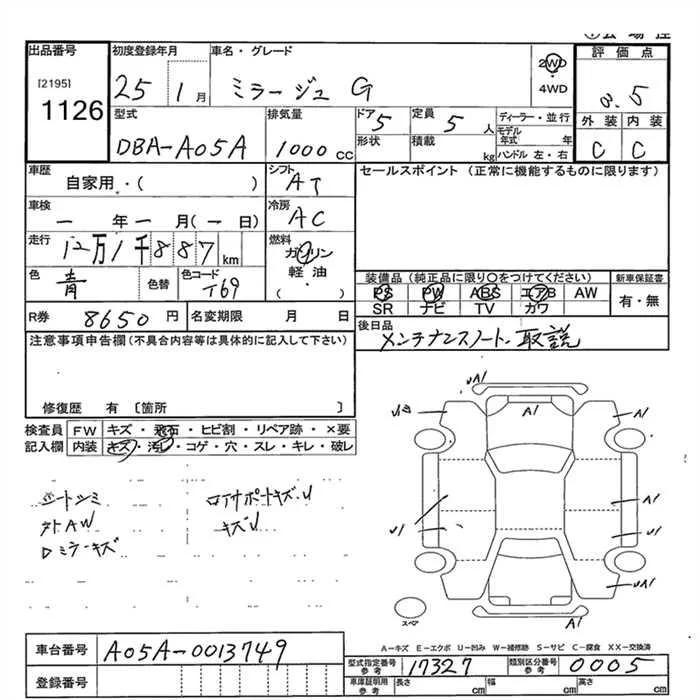 出品番号
[2195]
1126
初度登録年月
25 1月
車名・グレード
ミラージュ G
2WD
4WD
評価点
3.5
外装 内装
C C
型式
DBA-A05A
排気量
1000cc
ドア
5
形状
定員
5人
積載
kg
ディーラー・並行
モデル年式 年
ハンドル 左・右
車歴
自家用・( )
シフト
AT
セールスポイント(正常に機能するものに限ります)
車検
ー年ー月(ー日)
冷房
AC
走行
12万1千887km
燃料
ガソリン
軽油
( )
色
青
色替
色コード
T69
装備品(純正品に限り○をつけてください)
PS PW ABS エアB AW
SR ナビ TV カワ
新車保証書
有・無
R券
8650円
名変期限 月 日
後日品
メンテナンスノート、取説
注意事項申告欄(不具合内容等は具体的に記入して下さい)
修復歴 有〔箇所 〕
検査員記入欄
FW キズ・飛石・ヒビ割・リペア跡・×要
内装 キズ・汚レ・コゲ・穴・スレ・キレ・破レ
シートシミ
外AW
ロミラーキズ
ロアサポートキズ.U
キズU
UA1
A1
A1
A1
U1
U1
UA1
UA1
スペア
A−キズ E−エクボ U−凹み W−補修跡 S−サビ C−腐食 XX−交換済
車台番号
A05A-0013749
登録番号
型式指定番号
参考
17327
類別区分番号
参考
0005
車庫証明用
参考
長さ cm
幅 cm
高さ cm